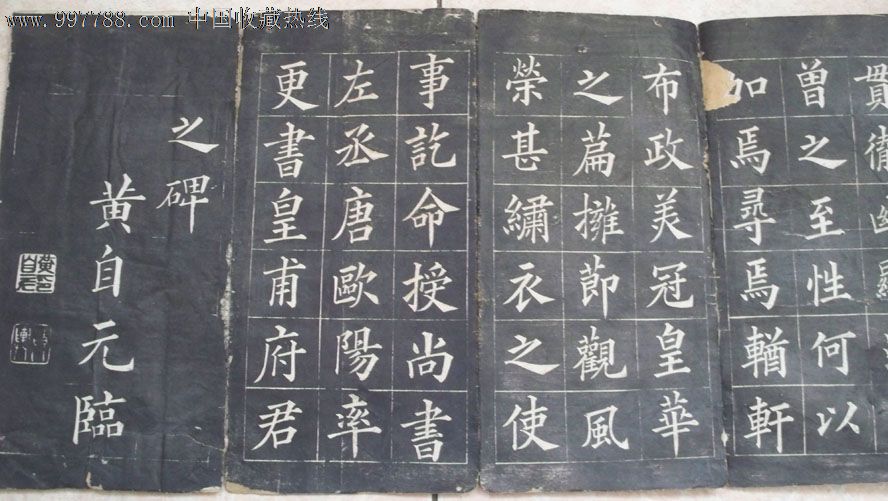 www.997788.com 中国收藏热线
貫徹
曾之至性何以
如焉尋焉輶軒
布政美冠皇華
之篇擁節觀風
榮甚繡衣之使
事訖命授尚書
左丞唐歐陽率
更書皇甫府君
之碑
黄自元臨